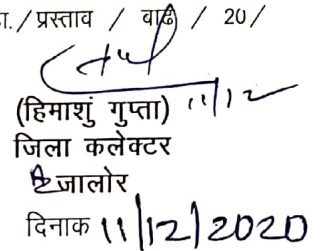 ा. / प्रस्ताव / बाढ / 20 /
(हिमाशुं गुप्ता) 11/12
जिला कलेक्टर
जालोर
दिनाक 11/12/2020